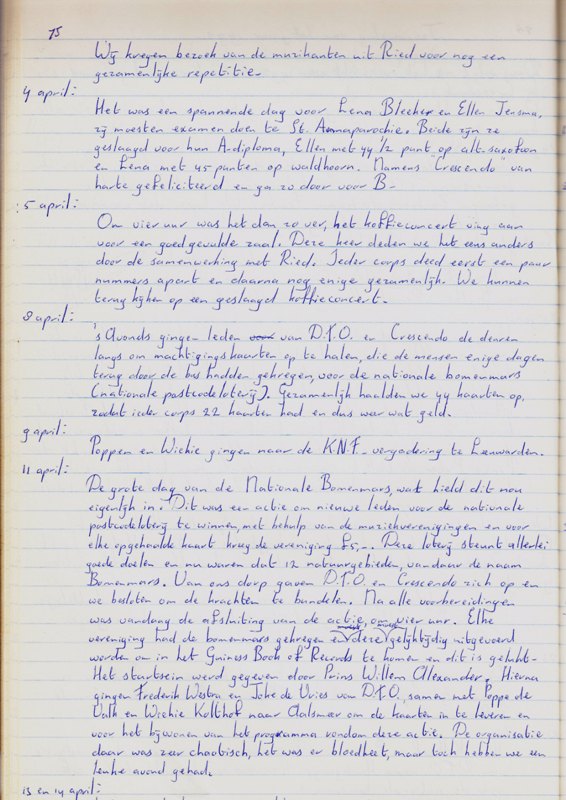 75
Wij kregen bezoek van de muzikanten uit Ried voor nog een
gezamenlijke repetitie.
4 april:
Het was een spannende dag voor Lena Bleeker en Ellen Jensma,
zij moesten examen doen te St. Annaparochie. Beide zijn ze
geslaagd voor hun A-diploma, Ellen met 44 1/2 punt op alt-saxofoon
en Lena met 45 punten op waldhoorn. Namens "Crescendo" van
harte gefeliciteerd en ga zo door voor B.
5 april:
Om vier uur was het dan zo ver, het koffieconcert ving aan
voor een goed gevulde zaal. Deze keer deden we het eens anders
door de samenwerking met Ried. Ieder corps deed eerst een paar
nummers apart en daarna nog enige gezamenlijk. We kunnen
terug kijken op een geslaagd koffieconcert.
8 april:
's Avonds gingen leden van D.T.O. en Crescendo de deuren
langs om machtigingskaarten op te halen, die de mensen enige dagen
terug door de bus hadden gekregen, voor de nationale bomenmars
(nationale postcodeloterij). Gezamenlijk haalden we 44 kaarten op,
zodat ieder corps 22 kaarten had en dus weer wat geld.
9 april:
Poppe en Wiekie gingen naar de K.N.F. vergadering te Leeuwarden.
11 april:
De grote dag van de Nationale Bomenmars, wat hield dit nou
eigenlijk in. Dit was een actie om nieuwe leden voor de nationale
postcodeloterij te winnen, met behulp van de muziekverenigingen en voor
elke opgehaalde kaart kreeg de vereniging f5,-. Deze loterij steunt allerlei
goede doelen en nu waren dat 12 natuurgebieden, vandaar de naam
Bomenmars. Van ons dorp gaven D.T.O. en Crescendo zich op en
we besloten om de krachten te bundelen. Na alle voorbereidingen
was vandaag de afsluiting van de actie, om vier uur. Elke
vereniging had de bomenmars gekregen en deze moest gelijktijdig uitgevoerd
worden om in het Guiness Book of Records te komen en dit is gelukt.
Het startsein werd gegeven door Prins Willem Alexander. Hierna
gingen Frederik Westra en Joke de Vries van D.T.O., samen met Poppe de
Valk en Wiekie Kolthof naar Aalsmeer om de kaarten in te leveren en
voor het bijwonen van het programma rondom deze actie. De organisatie
daar was zeer chaotisch, het was er bloedheet, maar toch hebben we een
leuke avond gehad.
13 en 14 april: